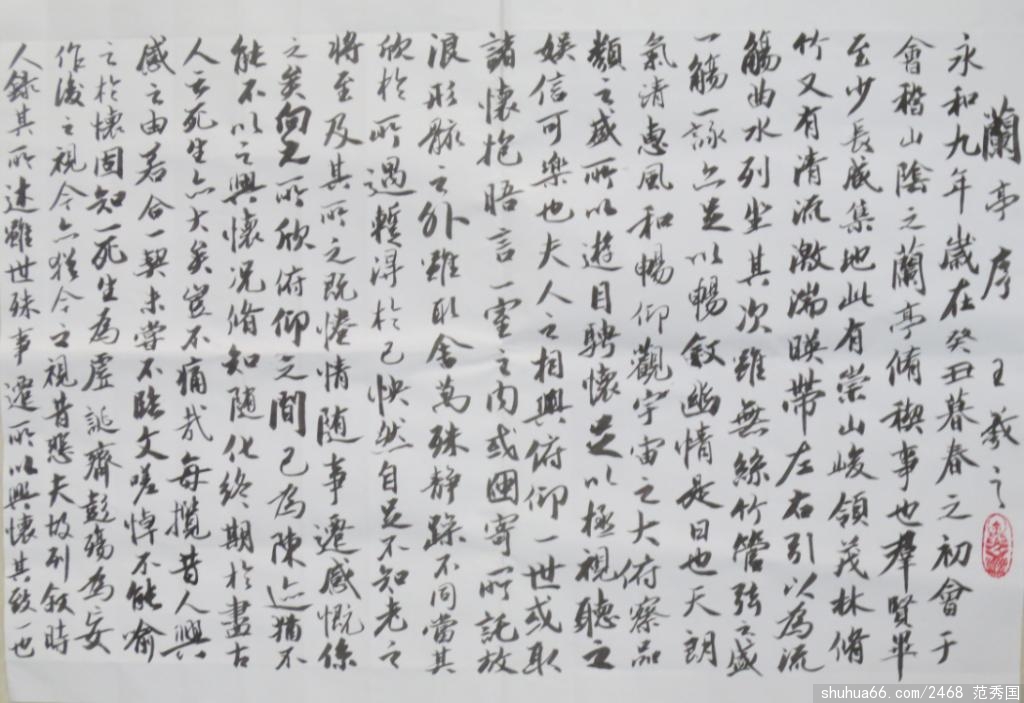 蘭亭序 王羲之
永和九年歲在癸丑暮春之初會于
會稽山陰之蘭亭脩禊事也羣賢畢
至少長咸集地此有崇山峻領茂林脩
竹又有清流激湍暎帶左右引以為流
觴曲水列坐其次雖無絲竹管弦之盛
一觴一詠亦足以暢敘幽情是日也天朗
氣清惠風和暢仰觀宇宙之大俯察品
類之盛所以遊目騁懷足以極視聽之
娛信可樂也夫人之相與俯仰一世或取
諸懷抱晤言一室之內或因寄所託放
浪形骸之外雖取舍萬殊靜躁不同當其
欣於所遇暫得於己怏然自足不知老之
將至及其所之既惓情隨事遷感慨係
之矣向之所欣俯仰之間已為陳迹猶不
能不以之興懷況脩短隨化終期於盡古
人云死生亦大矣豈不痛哉每攬昔人興
感之由若合一契未嘗不臨文嗟悼不能喻
之於懷固知一死生為虛誕齊彭殤為妄
作後之視今亦猶今之視昔悲夫故列敘時
人錄其所述雖世殊事遷所以興懷其致一也
shuhua66.com/2468 范秀国